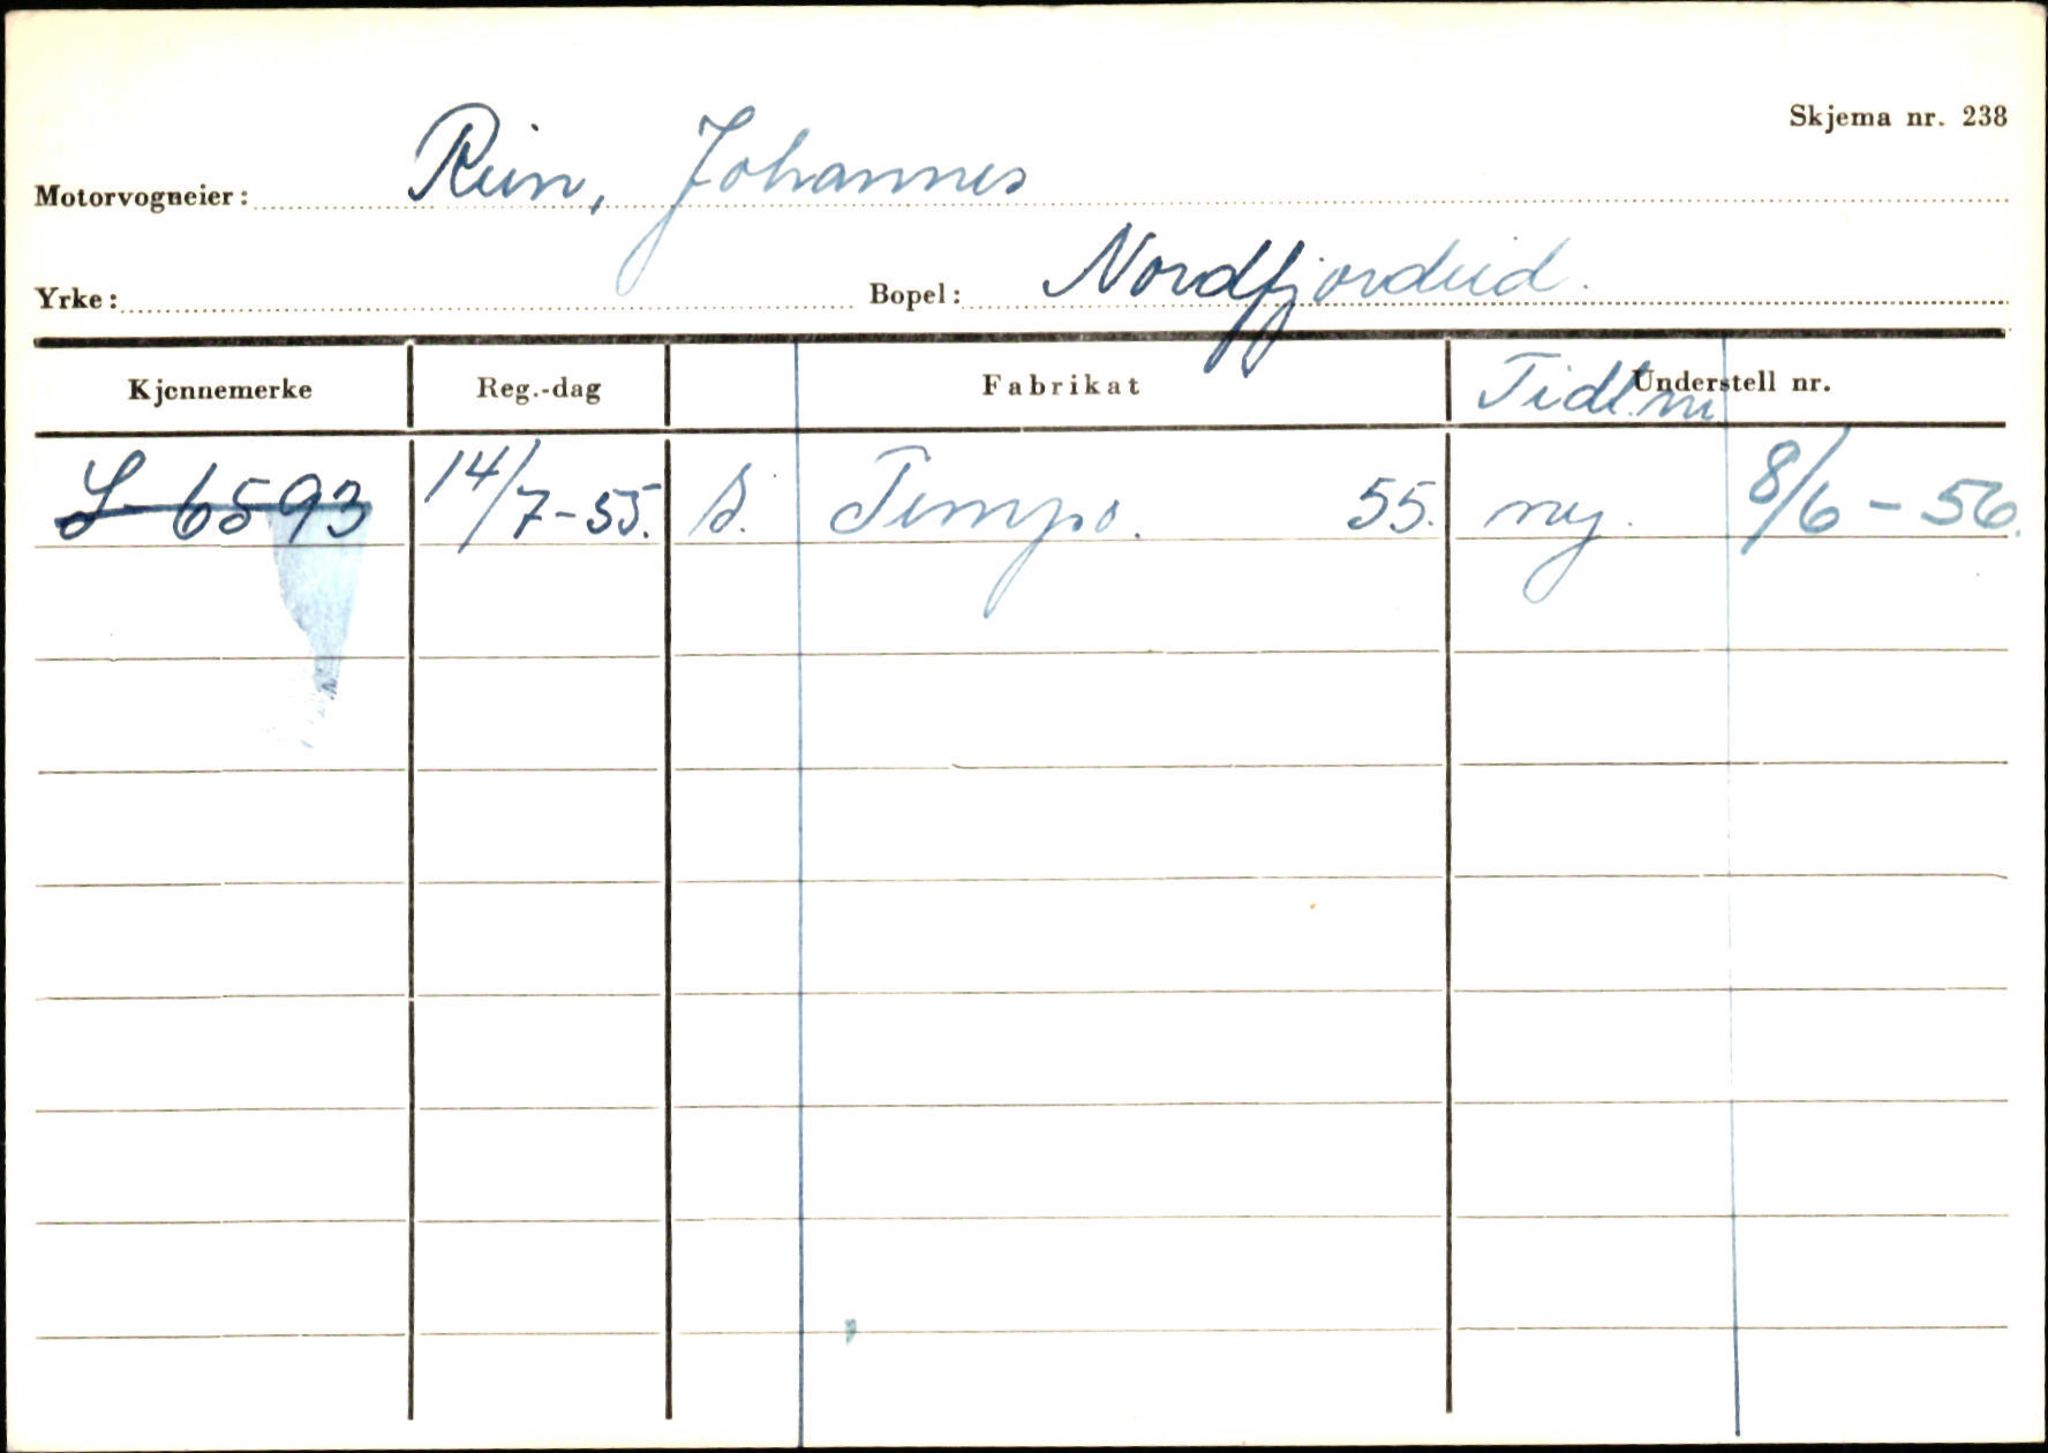 Skjema nr. 238
Motorvogneier: Rein, Johannes
Yrke: Bopel: Nordfjordeid.
Kjennemerke Reg.-dag Fabrikat Understell nr.
Tidl. nr
S- 6593 14/7-55. s. Tempo. 55. ny. 8/6-56.